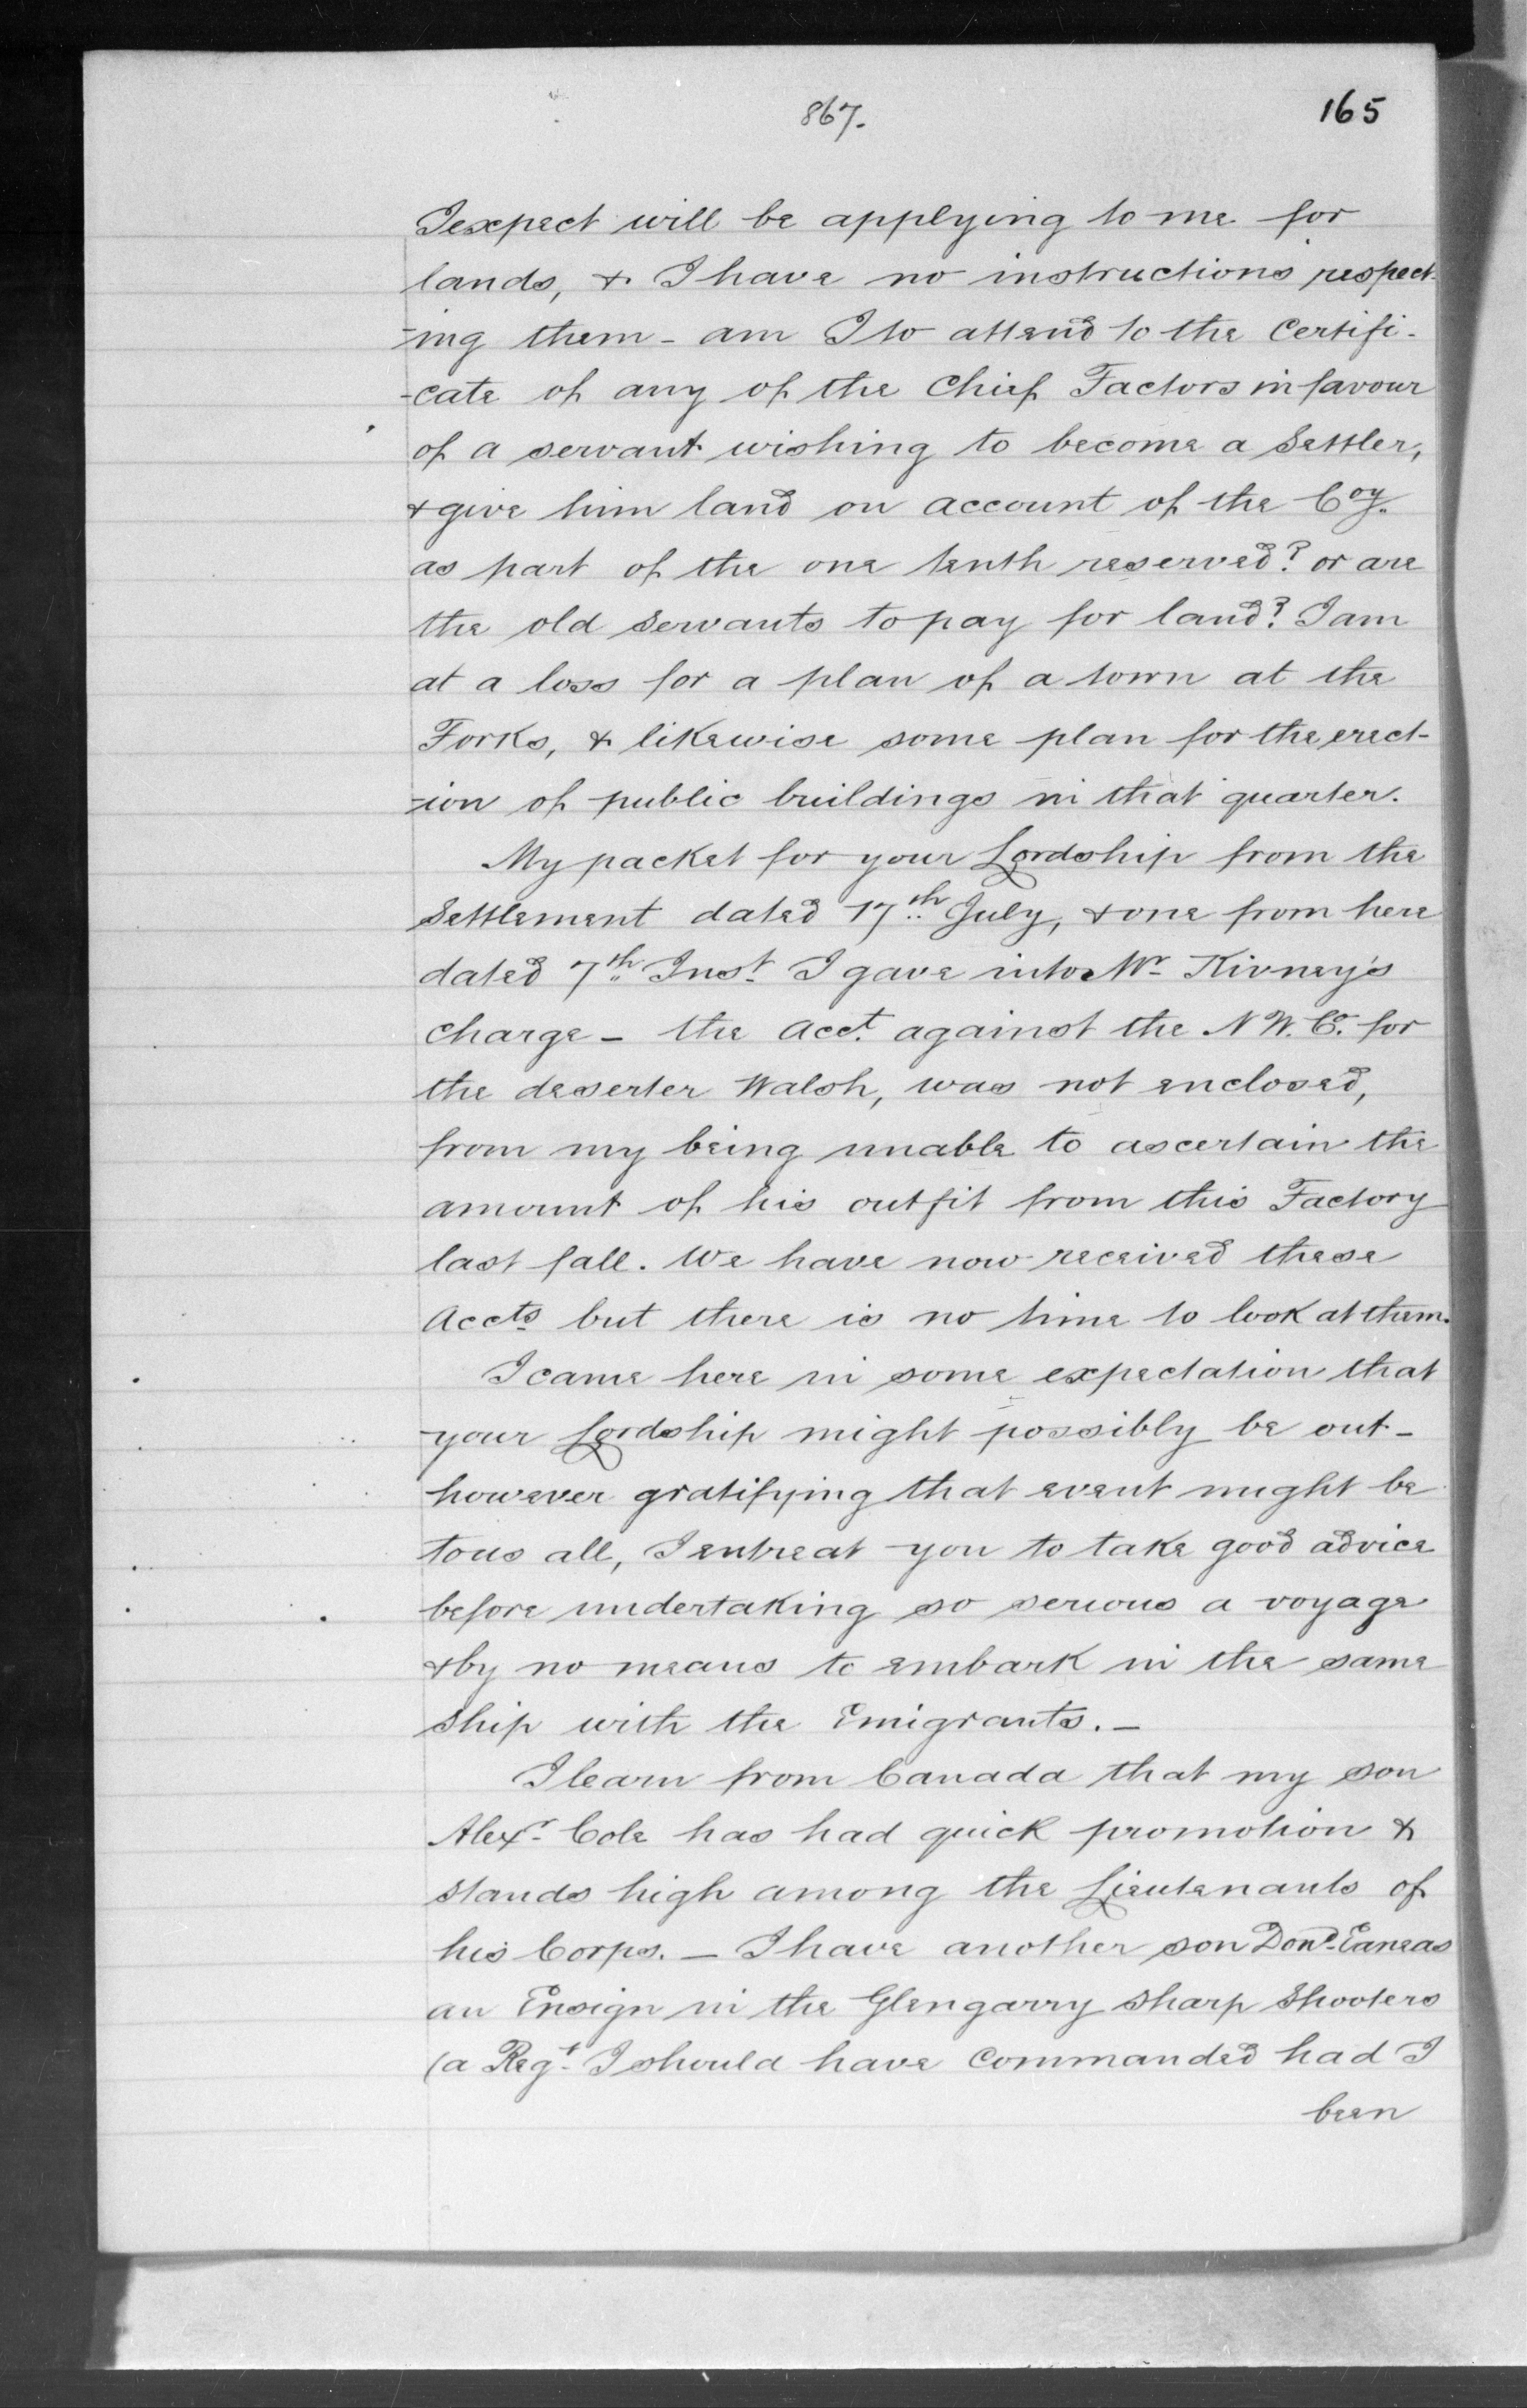 867.
165
I expect will be applying to me for
lands, & I have no instructions respect-
-ing them - am I to attend to the Certifi-
-cate of any of the Chief Factors in favour
of a servant wishing to become a Settler,
& give him land on account of the Coy.
as part of the one tenth reserved? or are
the old Servants to pay for land? I am
at a loss for a plan of a town at the
Forks, & likewise some plan for the erect-
-ion of public buildings in that quarter.
My packet for your Lordship from the
Settlement dated 17th July, & one from here
dated 7th Inst. I gave into Mr. Kivney's
charge - the acct. against the N W. Co. for
the deserter Walsh, was not enclosed,
from my being unable to ascertain the
amount of his outfit from this Factory
last fall. We have now received these
Accts but there is no time to look at them.
I came here in some expectation that
your Lordship might possibly be out -
however gratifying that event might be
to us all, I entreat you to take good advice
before undertaking so serious a voyage
& by no means to embark in the same
Ship with the Emigrants. -
I learn from Canada that my son
Alexr. Cole has had quick promotion &
stands high among the Lieutenants of
his Corps. - I have another son Dond. Eaneas
an Ensign in the Glengarry Sharp Shooters
(a Regt. I should have Commanded had I
been